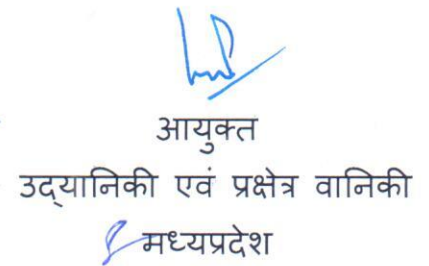 आयुक्त
उद्यानिकी एवं प्रक्षेत्र वानिकी
मध्यप्रदेश